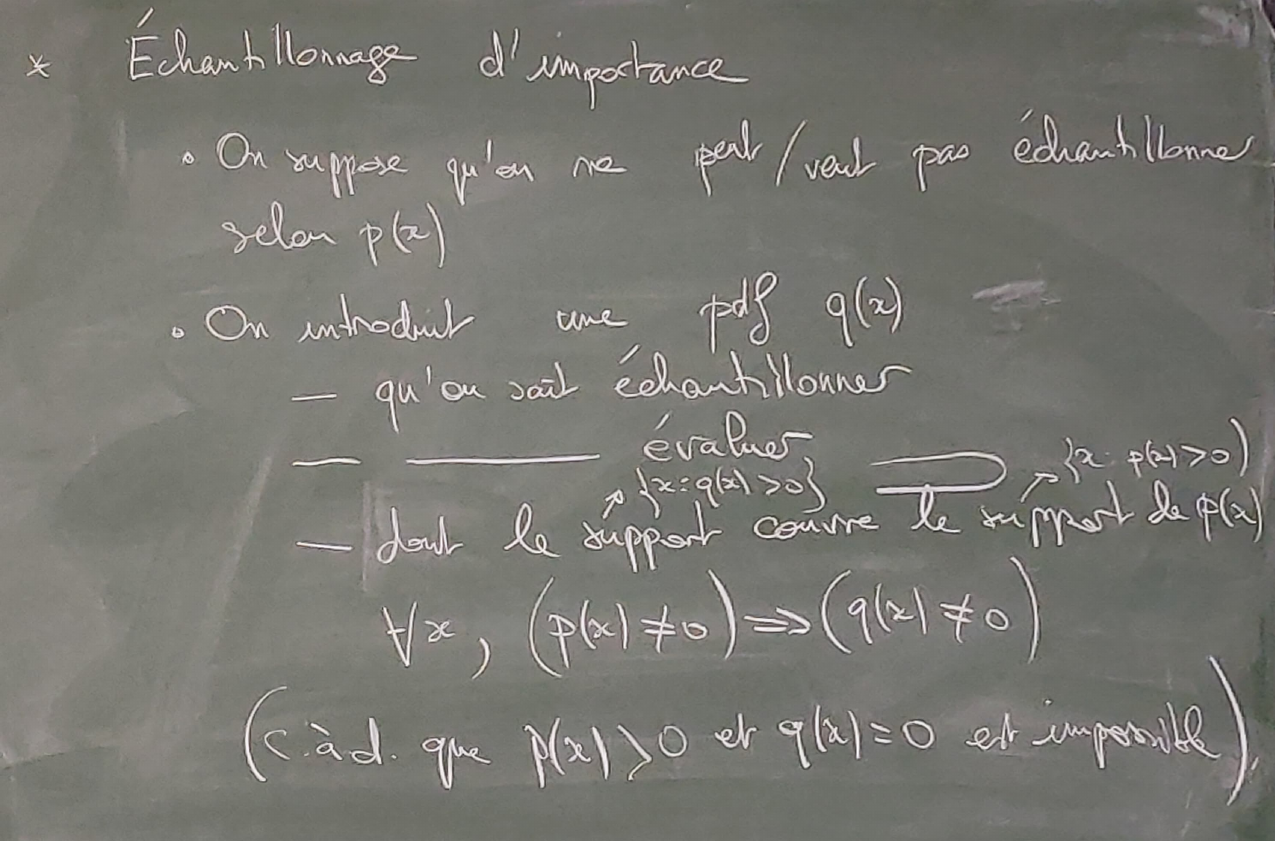 * Échantillonnage d'importance
• On suppose qu'on ne peut/veut pas échantillonner
selon p(x)
• On introduit une pdf q(x)
— qu'on sait échantillonner
— ——— évaluer
{x: q(x)>0} ⊃ {x: p(x)>0}
— dont le support couvre le support de p(x)
∀x, (p(x)≠0) ⇒ (q(x)≠0)
(c.àd. que p(x)>0 et q(x)=0 est impossible)